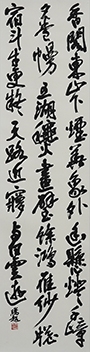 香閣東山下煙花象外幽懸燈千嶂
夕卷幔五湖秋畫壁餘鴻雁紗窗
宿斗牛更疑天路近夢與白雲遊